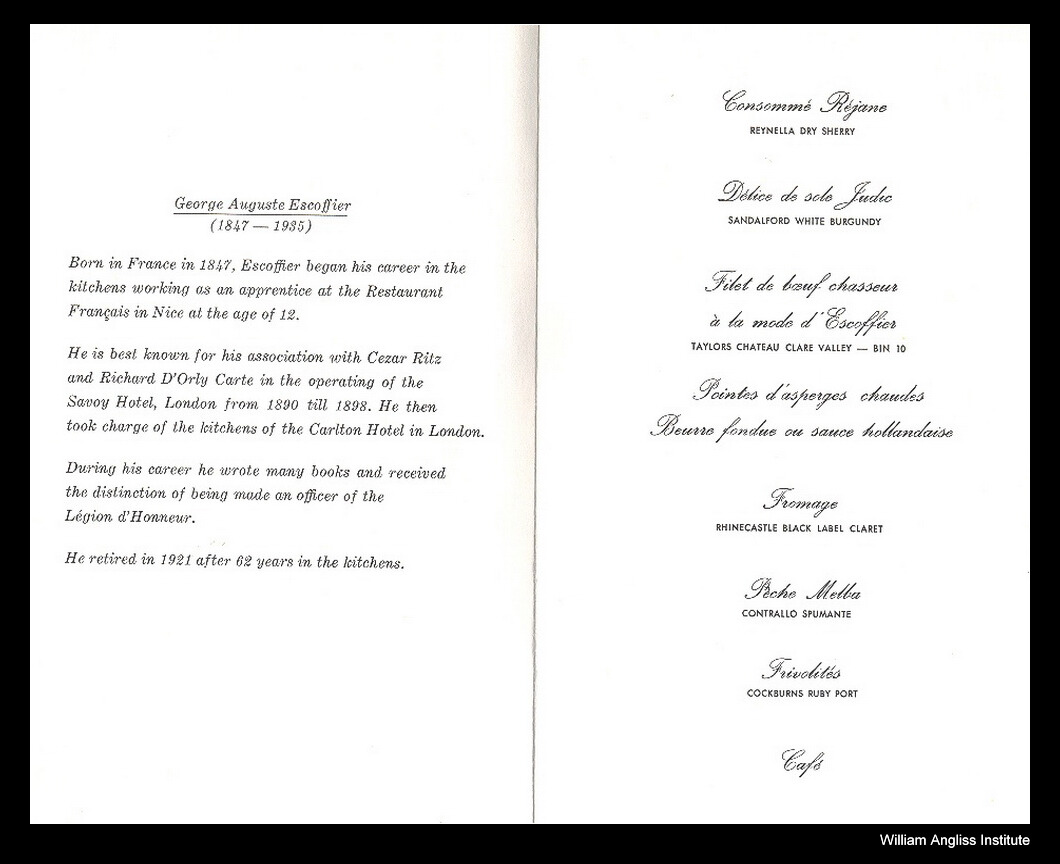 George Auguste Escoffier
(1847 — 1935)
Born in France in 1847, Escoffier began his career in the
kitchens working as an apprentice at the Restaurant
Français in Nice at the age of 12.
He is best known for his association with Cezar Ritz
and Richard D'Orly Carte in the operating of the
Savoy Hotel, London from 1890 till 1898. He then
took charge of the kitchens of the Carlton Hotel in London.
During his career he wrote many books and received
the distinction of being made an officer of the
Légion d'Honneur.
He retired in 1921 after 62 years in the kitchens.
Consommé Réjane
REYNELLA DRY SHERRY
Délice de sole Judic
SANDALFORD WHITE BURGUNDY
Filet de bœuf chasseur
à la mode d'Escoffier
TAYLORS CHATEAU CLARE VALLEY — BIN 10
Pointes d'asperges chaudes
Beurre fondue ou sauce hollandaise
Fromage
RHINECASTLE BLACK LABEL CLARET
Pêche Melba
CONTRALLO SPUMANTE
Frivolités
COCKBURNS RUBY PORT
Café
William Angliss Institute